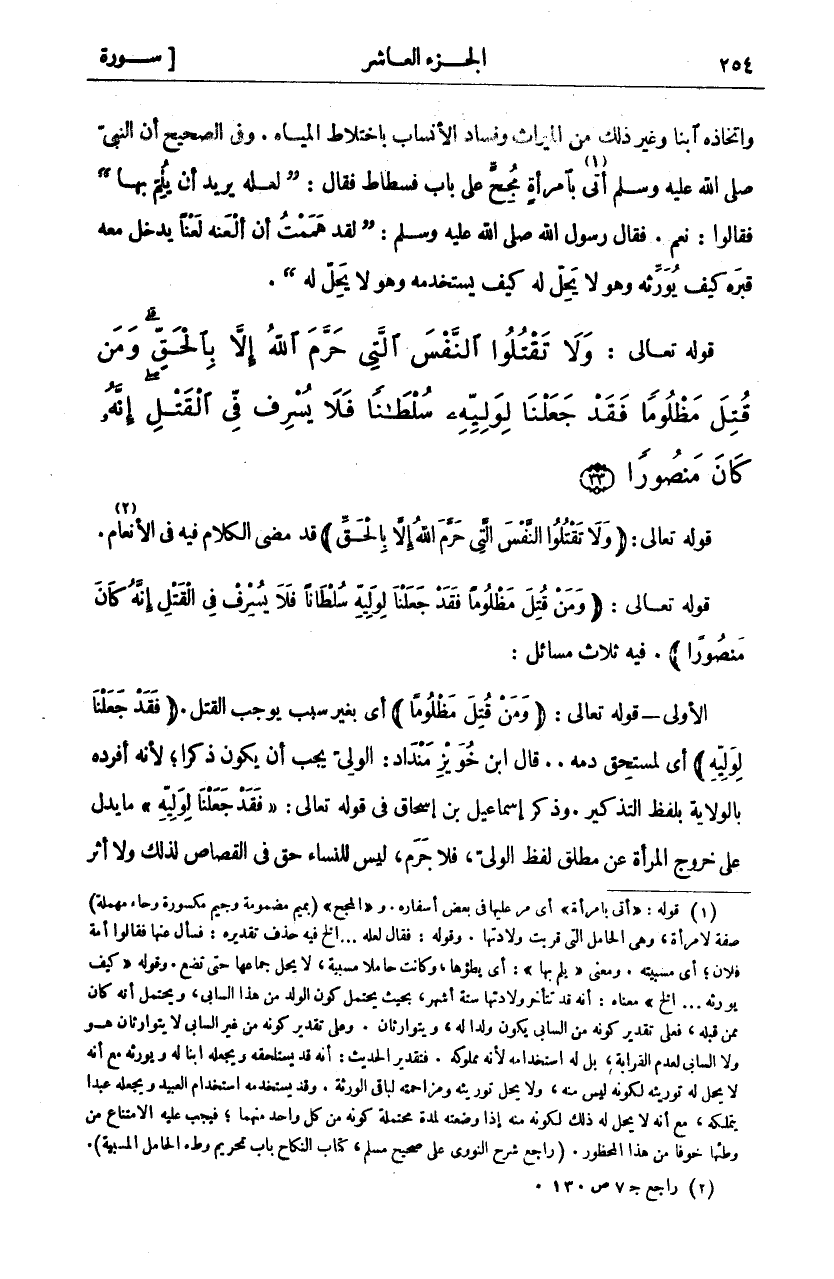 ٢٥٤ الجـزء العـاشر [ ســورة
وٱتخاذه ٱبنا وغير ذلك من الميراث وفساد الأنساب باختلاط الميـاه . وفى الصحيح أن النبىّ
صلى الله عليه وسـلم أتى (١) بٱمرأةٍ مُجِحٍّ على باب فسطاط فقال : ” لعـله يريد أن يُلِمّ بهـا “
فقالوا : نعم . فقال رسول الله صلى الله عليه وسلم : ” لقد هَمَمْتُ أن ألعنه لَعْنًا يدخل معه
قبرَه كيف يُوَرِّثه وهو لا يَحِلّ له كيف يستخدمه وهو لا يَحِلّ له “ .
قوله تعـالى : وَلَا تَقْتُلُوا ٱلنَّفْسَ ٱلَّتِي حَرَّمَ ٱللَّهُ إِلَّا بِٱلْحَقِّ ۗ وَمَن
قُتِلَ مَظْلُومًا فَقَدْ جَعَلْنَا لِوَلِيِّهِۦ سُلْطَـٰنًا فَلَا يُسْرِف فِّي ٱلْقَتْلِ ۖ إِنَّهُۥ
كَانَ مَنصُورًا ۝٣٣
قوله تعالى : ﴿ وَلَا تَقْتُلُوا النَّفْسَ الَّتِي حَرَّمَ اللهُ إِلَّا بِالْحَقِّ ﴾ قد مضى الكلام فيه فى الأنعام (٢) .
قوله تعـالى : ﴿ وَمَنْ قُتِلَ مَظْلُومًا فَقَدْ جَعَلْنَا لِوَلِيِّهِ سُلْطَانًا فَلَا يُسْرِفْ فِي الْقَتْلِ إِنَّهُ كَانَ
مَنصُورًا ﴾ . فيه ثلاث مسائل :
الأولى — قوله تعالى : ﴿ وَمَنْ قُتِلَ مَظْلُومًا ﴾ أى بغير سبب يوجب القتل . ﴿ فَقَدْ جَعَلْنَا
لِوَلِيِّهِ ﴾ أى لمستحق دمه . . قال ابن خُوَيْزِ مَنْدَاد : الولىّ يجب أن يكون ذكرا ؛ لأنه أفرده
بالولاية بلفظ التذكير . وذكر إسماعيل بن إسحاق فى قوله تعالى : « فَقَدْ جَعَلْنَا لِوَلِيِّهِ » ما يدل
على خروج المرأة عن مطلق لفظ الولىّ ، فلا جَرَم ، ليس للنساء حق فى القصاص لذلك ولا أثر
(١) قوله : «أتى بامرأة» أى مر عليها فى بعض أسفاره . و «المجح» (بميم مضمومة وجيم مكسورة وحاء مهملة)
صفة لامرأة ، وهى الحامل التى قربت ولادتها . وقوله : فقال لعله ...الخ فيه حذف تقديره : فسأل عنها فقالوا أمة
فلان ؛ أى مسبيته . ومعنى « يلم بها » : أى يطؤها ، وكانت حاملا مسبية ، لا يحل جماعها حتى تضع . وقوله « كيف
يورثه ... الخ » معناه : أنه قد تتأخر ولادتها ستة أشهر ، بحيث يحتمل كون الولد من هذا السابى ، ويحتمل أنه كان
ممن قبله ، فعلى تقدير كونه من السابى يكون ولدا له ، ويتوارثان . وعلى تقدير كونه من غير السابى لا يتوارثان هــو
ولا السابى لعدم القرابة ؛ بل له استخدامه لأنه مملوكه . فتقدير الحديث : أنه قد يستلحقه ويجعله ابنا له ويورثه مع أنه
لا يحل له توريثه لكونه ليس منه ، ولا يحل توريثه ومزاحمته لباقى الورثة . وقد يستخدمه استخدام العبيد ويجعله عبدا
يتملكه ، مع أنه لا يحل له ذلك لكونه منه إذا وضعته لمدة محتملة كونه من كل واحد منهما ؛ فيجب عليه الامتناع من
وطئها خوفا من هذا المحظور . (راجع شرح النووى على صحيح مسلم ، كتاب النكاح باب تحريم وطء الحامل المسبية).
(٢) راجع جـ ٧ ص ١٣٠ .